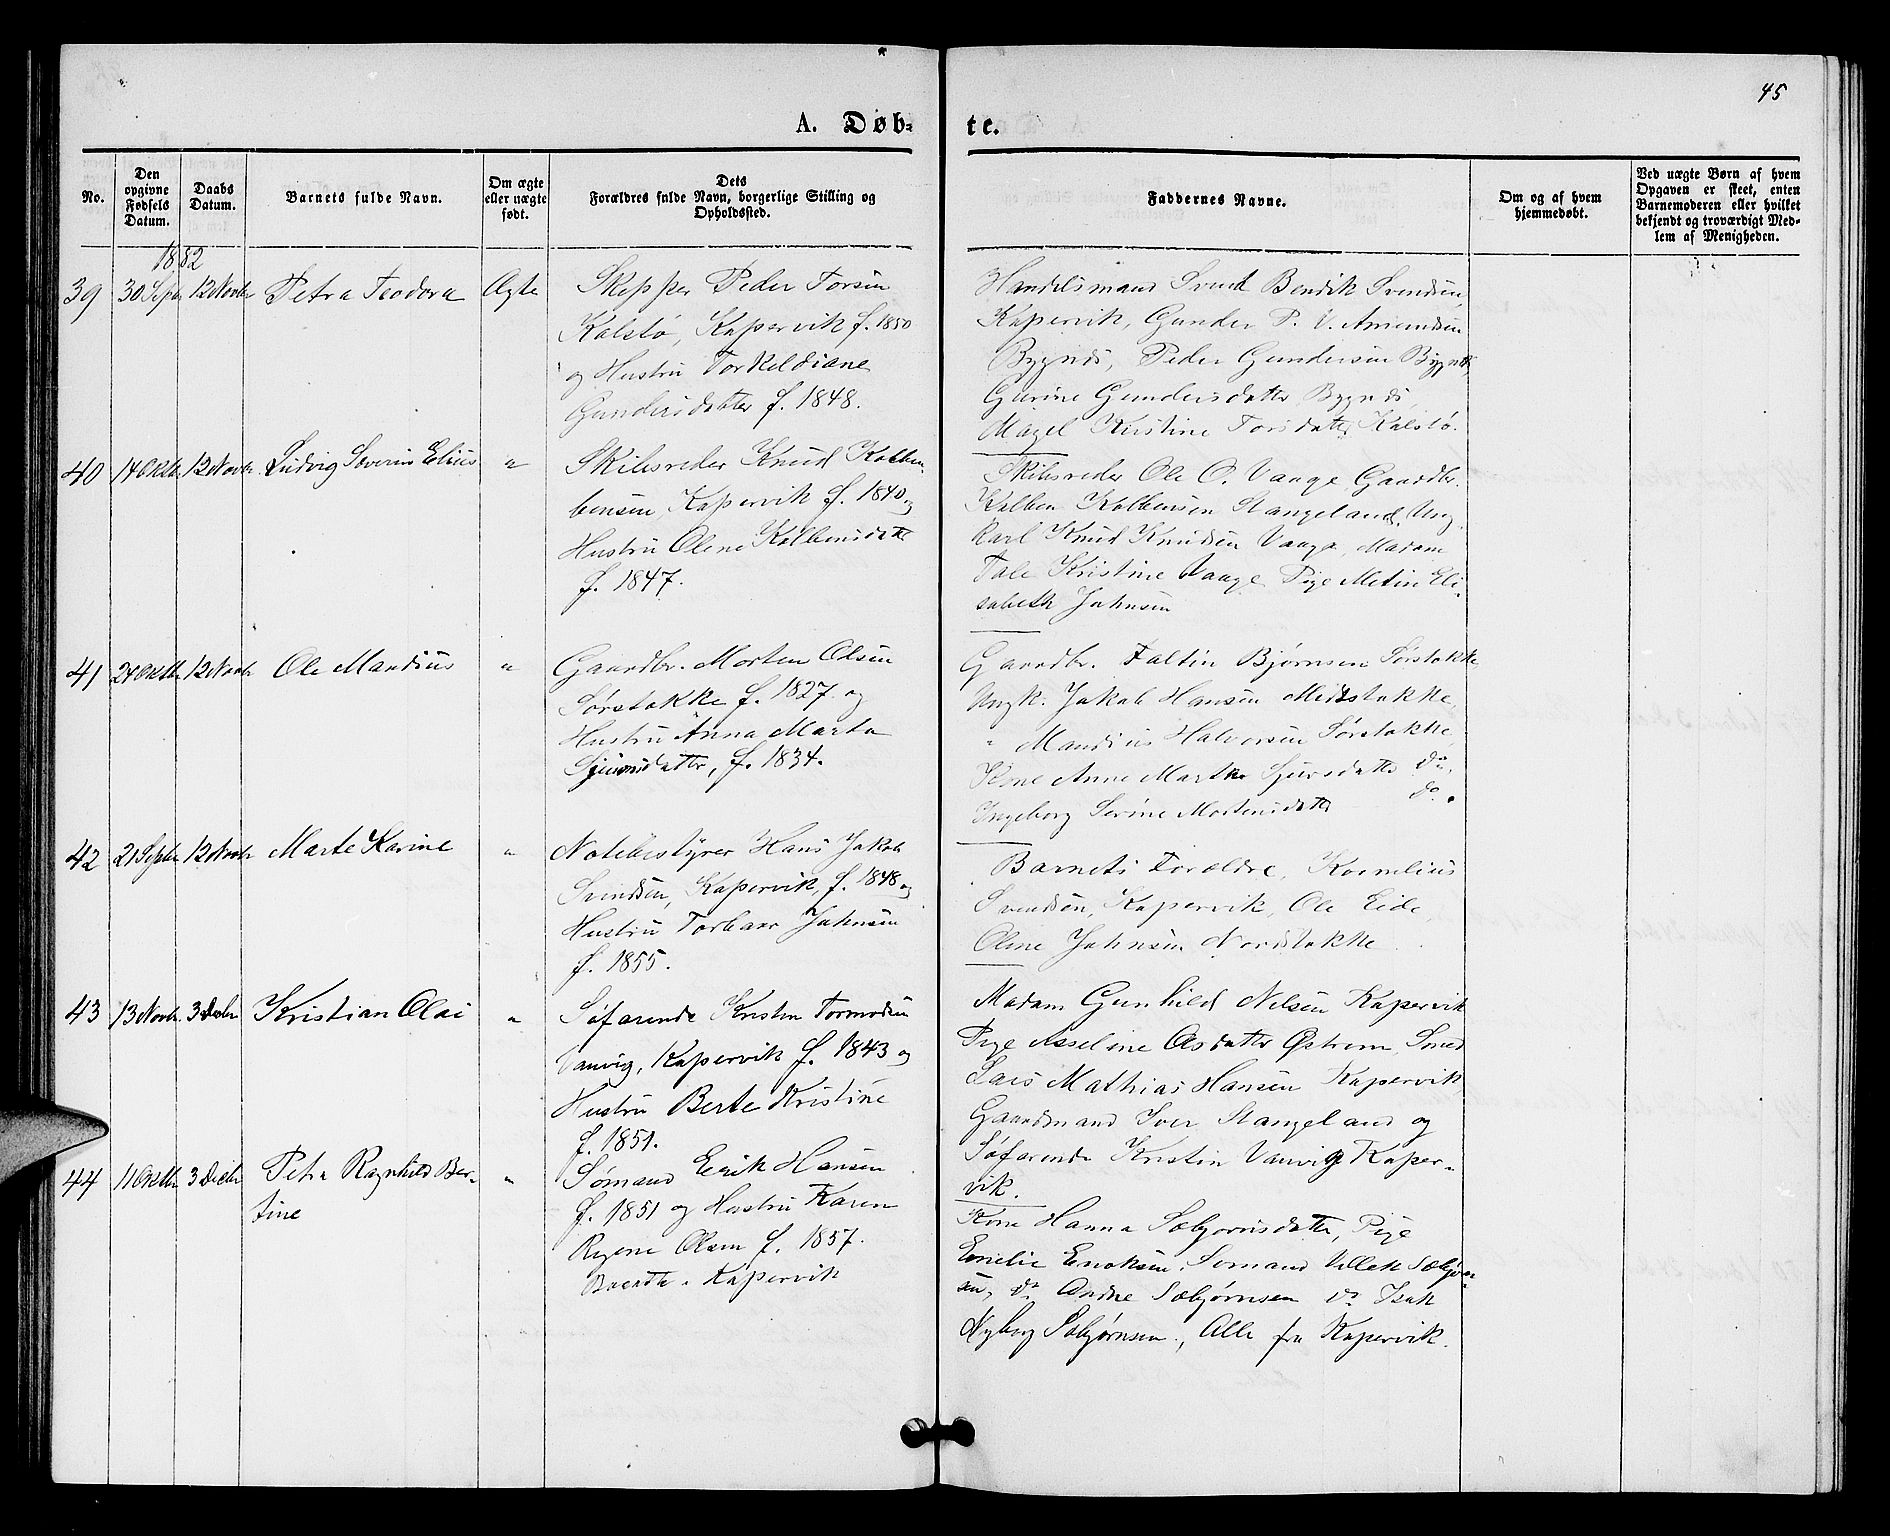 45
A. Døb-
te.
No.
Den opgivne Fødsels Datum.
Daabs Datum.
Barnets fulde Navn.
Om ægte eller uægte født.
Dets Forældres fulde Navn, borgerlige Stilling og Opholdssted.
Faddernes Navne.
Om og af hvem hjemmedøbt.
Ved uægte Børn af hvem Opgaven er skeet, enten Barnemoderen eller hvilket bekjendt og troværdigt Medlem af Menigheden.
1882
39 30 Septbr 12 Novbr Petra Teodora Ægte Skipper Peder Torsen
Kalstø, Kapervik f. 1850
og Hustru Torkeldiane
Gundersdatter f. 1848.
Handelsmand Svend Bendik Svendsen,
Kapervik, Gunder P. V. Amundsen
Bygnds, Peder Gundersen Bygnds,
Gurine Gundersdatter Bygnds
Kristine Torsdatter Kalstø.
40 14 Oktbr 12 Novbr. Ludvig Severin Elius " Skibsreder Knud Kolben-
bensen, Kapervik f. 1840 og
Hustru Olene Kolbensdatter
f. 1847.
Skibsreder Ole O. Vaage, Gaardbr.
Kolben Kolbensen Stangeland, Ung
karl Knud Knudsen Vaage, Madam
Tale Kristine Vaage, Pige Metin Eli-
sabeth Jahnsen
41 24 Oktbr. 12 Novbr Ole Mandius " Gaardbr. Morten Olsen
Sørstokke f. 1827 og
Hustru Anna Marta
f. 1834.
Gaardbr. Faltin Bjørnsen Sørstokke
Ungk. Jakob Hansen Midtstokke,
" Mandius Halvorsen Sørstokke,
Kone Anne Marthe Sjursdatter do.
Ingeborg Serine Mortensdatter do.
42 21 Septbr 12 Novbr Marte Karine " Notebestyrer Hans Jakob
Svendsen, Kapervik, f. 1848 og
Hustru Torbaar Jahnsen
f. 1855.
Barnets Forældre, Kornelius
Svendsen, Kapervik, Ole Eide,
Oline Jahnsen Nordstokke.
43 13 Novbr. 3 Decbr Kristian Olai " Søfarende Kristen Tormodsen
Vanvig, Kapervik f. 1843 og
Hustru Berte Kristine
f. 1851.
Madam Gunhild Nilsen Kapervik
Pige Asseline Osdatter Østrem, Smed
Lars Mathias Hansen Kapervik
Gaardmand Iver Stangeland og
Søfarende Kristen Vanvig Kaper-
vik.
44 11 Oktbr. 3 Decbr Petra Ragnhild Ber-
tine " Sømand Erik Hansen
f. 1851 og Hustru Karen
Regine Olsen f. 1857.
Kapervik
Kone Hanna Sæbjørnsdatter, Pige
Emelie Enoksen, Sømand Villek Sæbjørn-
sen, do. Andre Sæbjørnsen do. Isak
Nyborg Sæbjørnsen, Alle fra Kapervik.